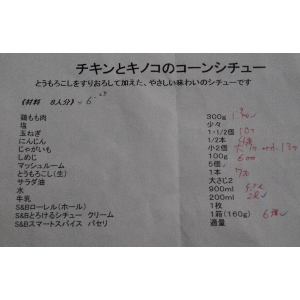 チキンとキノコのコーンシチュー
とうもろこしをすりおろして加えた、やさしい味わいのシチューです
《材料 8人分》
鶏もも肉 300g
塩 少々
玉ねぎ 1・1/2個
にんじん 1/2本
じゃがいも 小2個
しめじ 100g 600
マッシュルーム 5個
とうもろこし(生) 1本
サラダ油 大さじ2
水 900ml
牛乳 200ml
S&Bローレル(ホール) 1枚
S&Bとろけるシチュー クリーム 1箱(160g)
S&Bスマートスパイス パセリ 適量